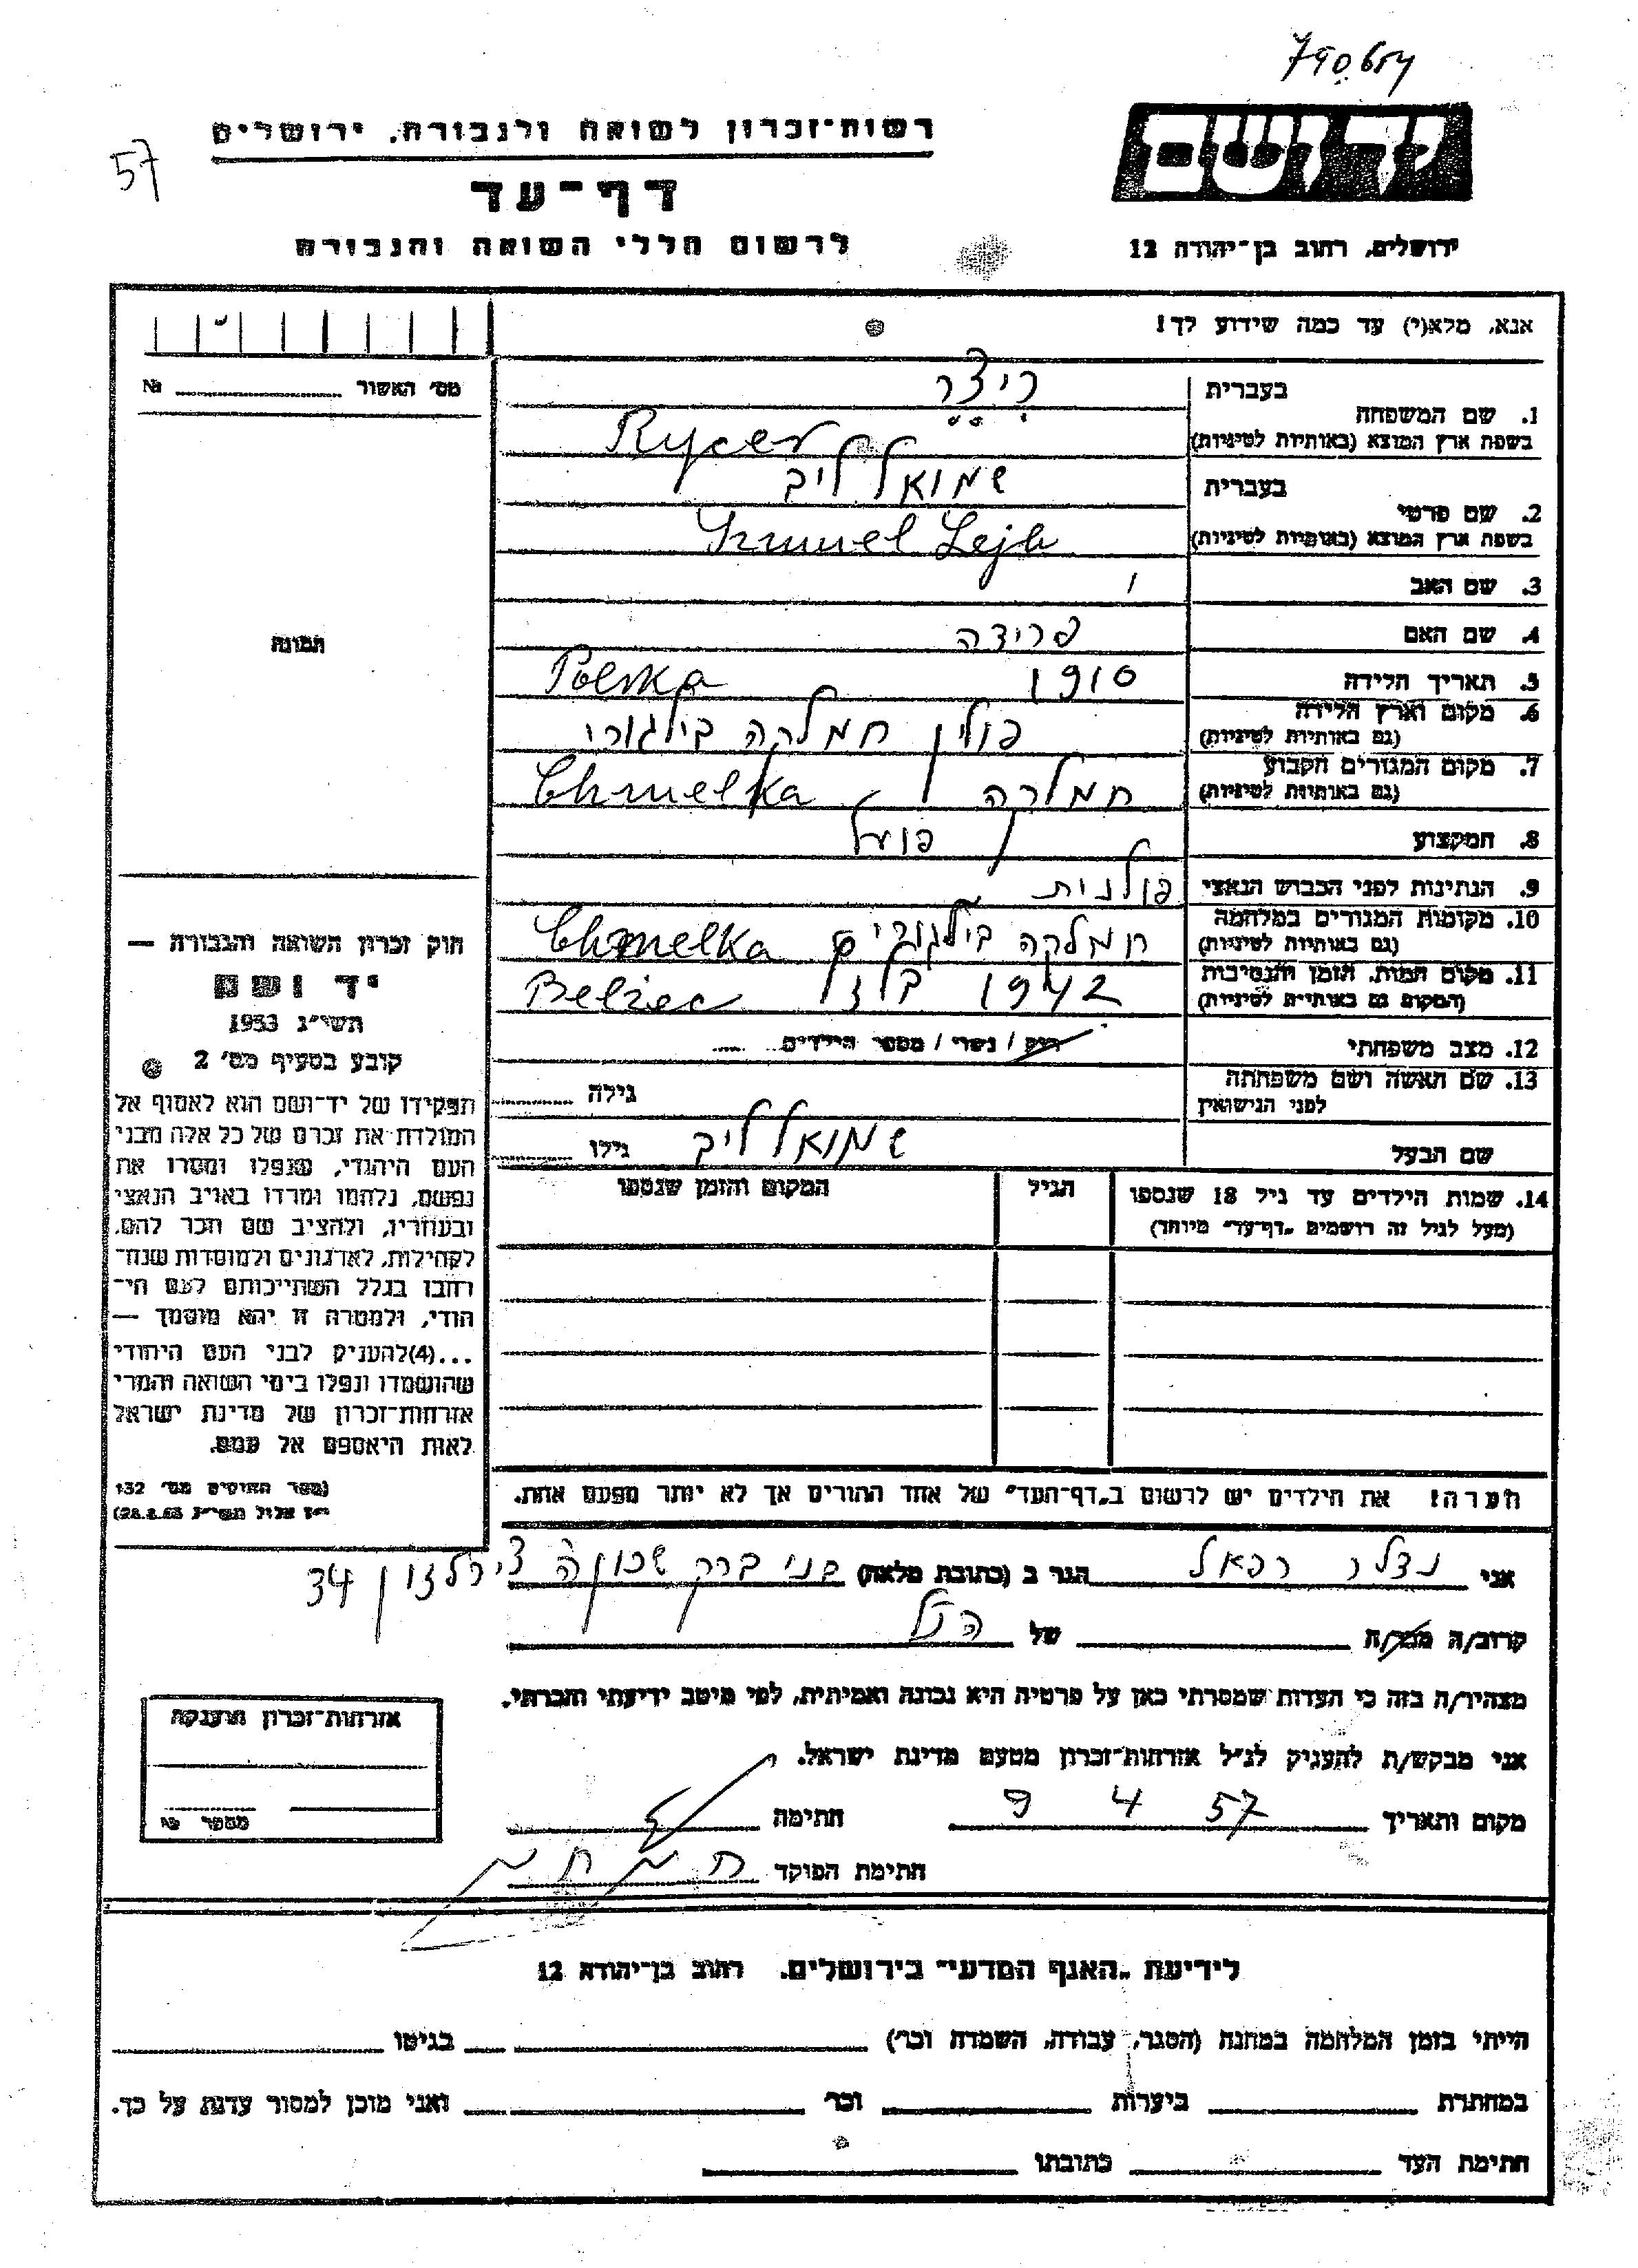 790654
57
רשות־זכרון לשואה ולגבורה, ירושלים
דף־עד
לרשום חללי השואה והגבורה
יד ושם
ירושלים, רחוב בן־יהודה 12
אנא, מלא(י) עד כמה שידוע לך!
מס׳ האשור № 
תמונה
1. שם המשפחה
בעברית ריצר
בשפת ארץ המוצא (באותיות לטיניות) Rycer
2. שם פרטי
בעברית שמואל ליב
בשפת ארץ המוצא (באותיות לטיניות) Szmuel Lejb
3. שם האב
4. שם האם פרידה
5. תאריך הלידה 1910 Polska
6. מקום וארץ הלידה (גם באותיות לטיניות) פולין חמלקה בילגורי
7. מקום המגורים הקבוע (גם באותיות לטיניות) חמלקה Chmelka
8. המקצוע פועל
9. הנתינות לפני הכבוש הנאצי פולנית
10. מקומות המגורים במלחמה (גם באותיות לטיניות) חמלקה בילגורי Chmelka
11. מקום המות, הזמן והנסיבות (המקום גם באותיות לטיניות) 1942 בלזץ Belzec
12. מצב משפחתי רווק / נשוי / מספר הילדים
13. שם האשה ושם משפחתה לפני הנישואין גילה
שם הבעל שמואל ליב גילו
14. שמות הילדים עד גיל 18 שנספו
(מעל לגיל זה רושמים „דף־עד״ מיוחד)
הגיל
המקום והזמן שנספו
חוק זכרון השואה והגבורה —
יד ושם
תשי״ג 1953
קובע בסעיף מס׳ 2
תפקידו של יד־ושם הוא לאסוף אל
המולדת את זכרם של כל אלה מבני
העם היהודי, שנפלו ומסרו את
נפשם, נלחמו ומרדו באויב הנאצי
ובעוזריו, ולהציב שם וזכר להם,
לקהילות, לארגונים ולמוסדות שנח־
רבו בגלל השתייכותם לעם הי־
הודי, ולמטרה זו יהא מוסמך —
...(4) להעניק לבני העם היהודי
שהושמדו ונפלו בימי השואה והמרי
אזרחות־זכרון של מדינת ישראל
לאות היאספם אל עמם.
(ספר החוקים מס׳ 132
י״ז אלול תשי״ג 28.8.53)
הערה! את הילדים יש לרשום ב„דף־העד״ של אחד ההורים אך לא יותר מפעם אחת.
אני נדלר רפאל הגר ב (כתובת מלאה) בני ברק שכונה 34
קרוב/ה מכר/ה של הנ״ל
מצהיר/ה בזה כי העדות שמסרתי כאן על פרטיה היא נכונה ואמיתית, לפי מיטב ידיעתי והכרתי.
אני מבקש/ת להעניק לנ״ל אזרחות־זכרון מטעם מדינת ישראל.
מקום ותאריך 9 4 57 חתימה
חתימת הפוקד
אזרחות־זכרון הוענקה
מספר №
לידיעת „האגף המדעי״ בירושלים, רחוב בן־יהודה 12
הייתי בזמן המלחמה במחנה (הסגר, עבודה, השמדה וכו׳) בגיטו
במחתרת ביערות וכו׳ ואני מוכן למסור עדות על כך.
חתימת העד כתובתו